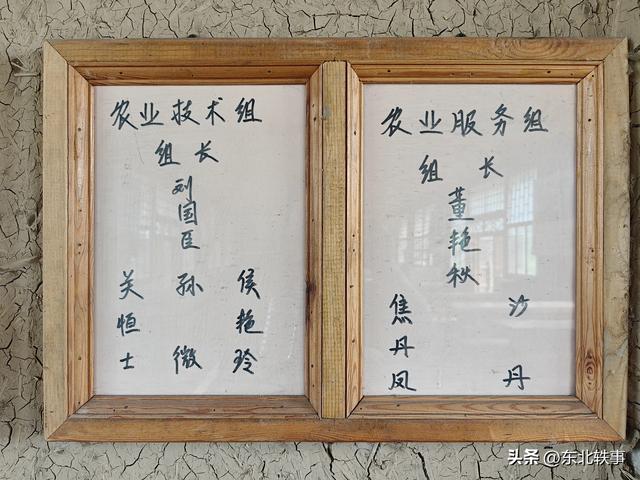 农业技术组
组长
刘国臣
关恒士
孙微
侯艳玲
农业服务组
组长
董艳秋
焦丹凤
沙丹
头条 @东北轶事